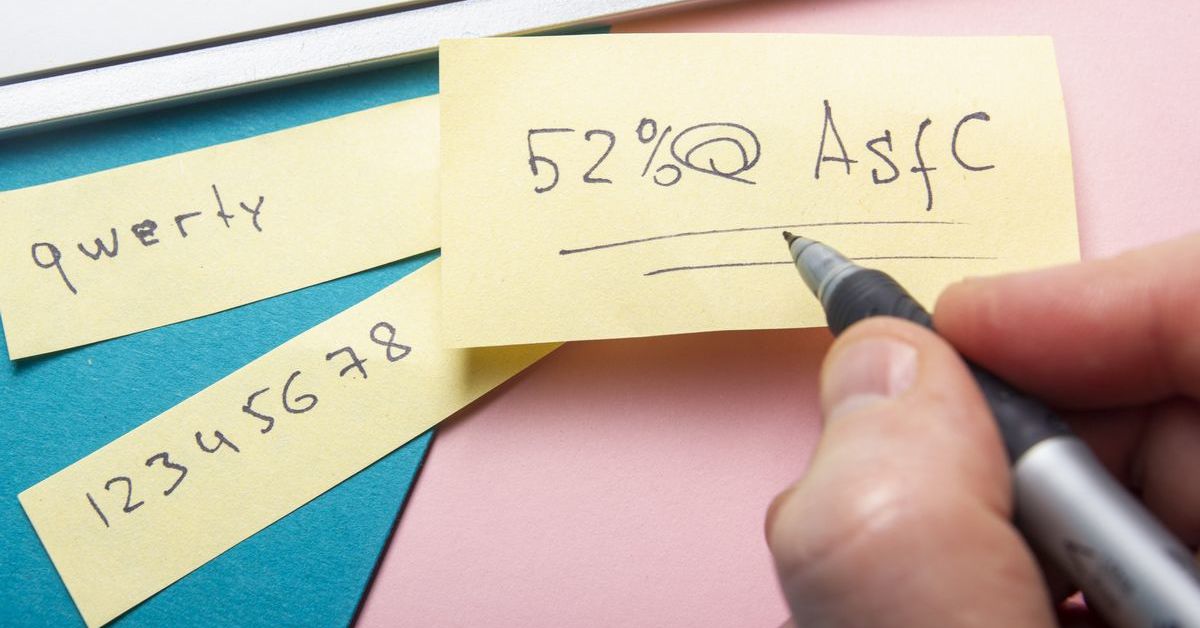 52%@ AsfC
qwerty
12345678